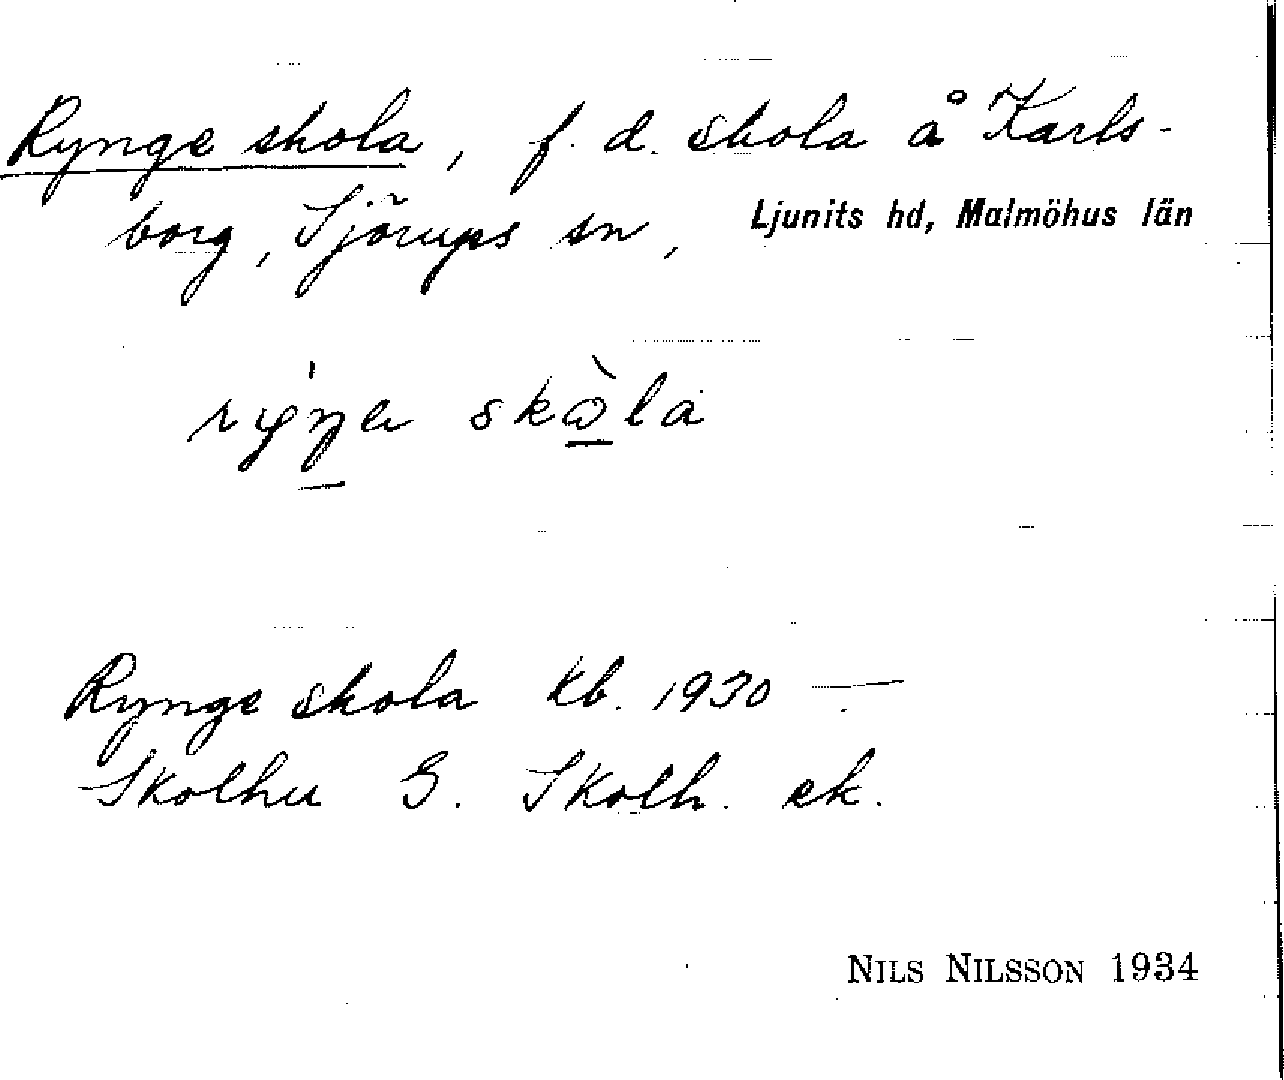 Rynge skola, f. d. skola å Karls-
borg, Sjörups sn, Ljunits hd, Malmöhus län
skola
Rynge skola Kb. 1930 —
Skolhu G. Skolh. ek.
NILS NILSSON 1934